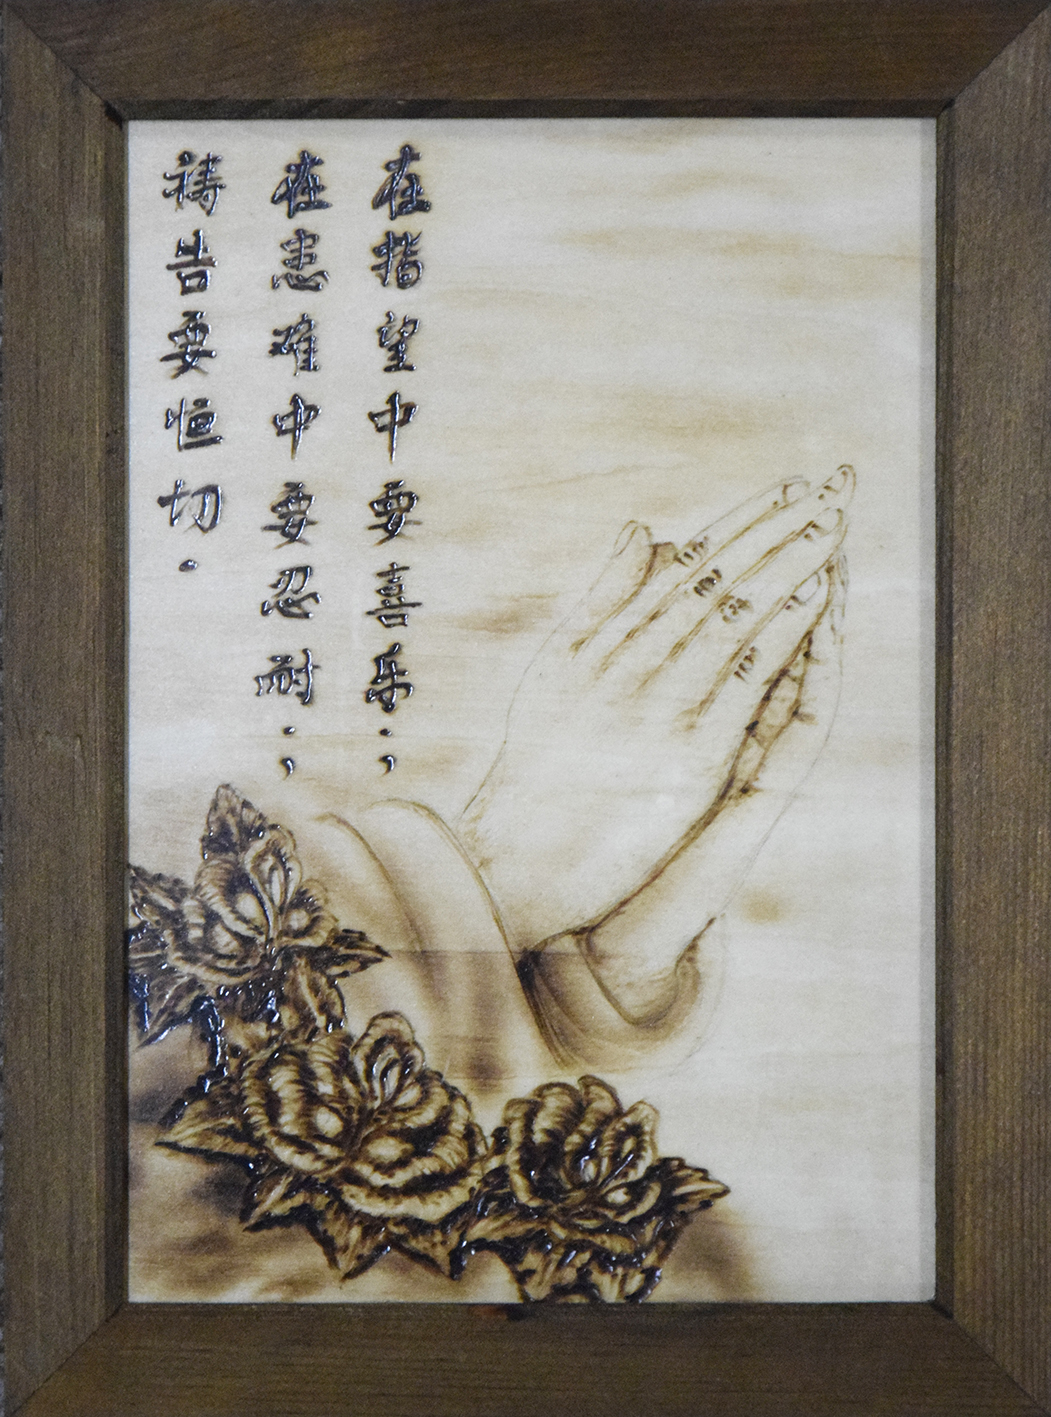 在指望中要喜乐；
在患难中要忍耐；
祷告要恒切.